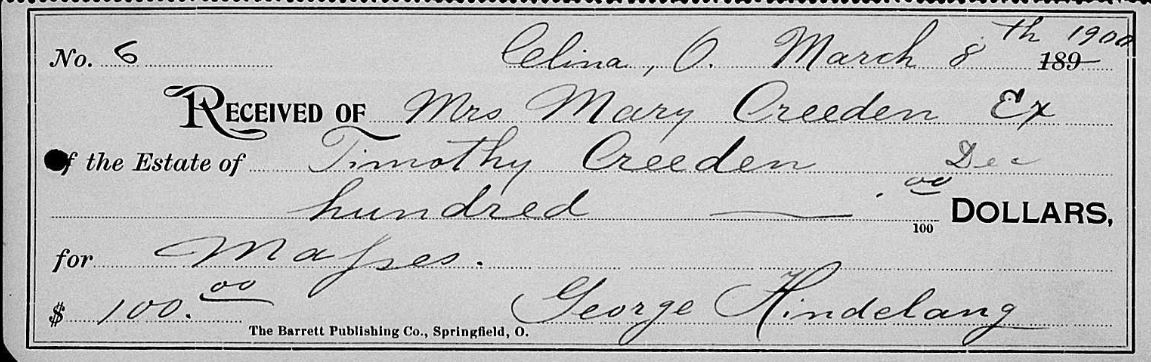 No. 6 Celina, O. March 8th 1900 189
RECEIVED OF Mrs Mary Creeden Ex
Of the Estate of Timothy Creeden Dec
hundred 00/100 DOLLARS,
for Masses.
$ 100.00 George Hindelang
The Barrett Publishing Co., Springfield, O.